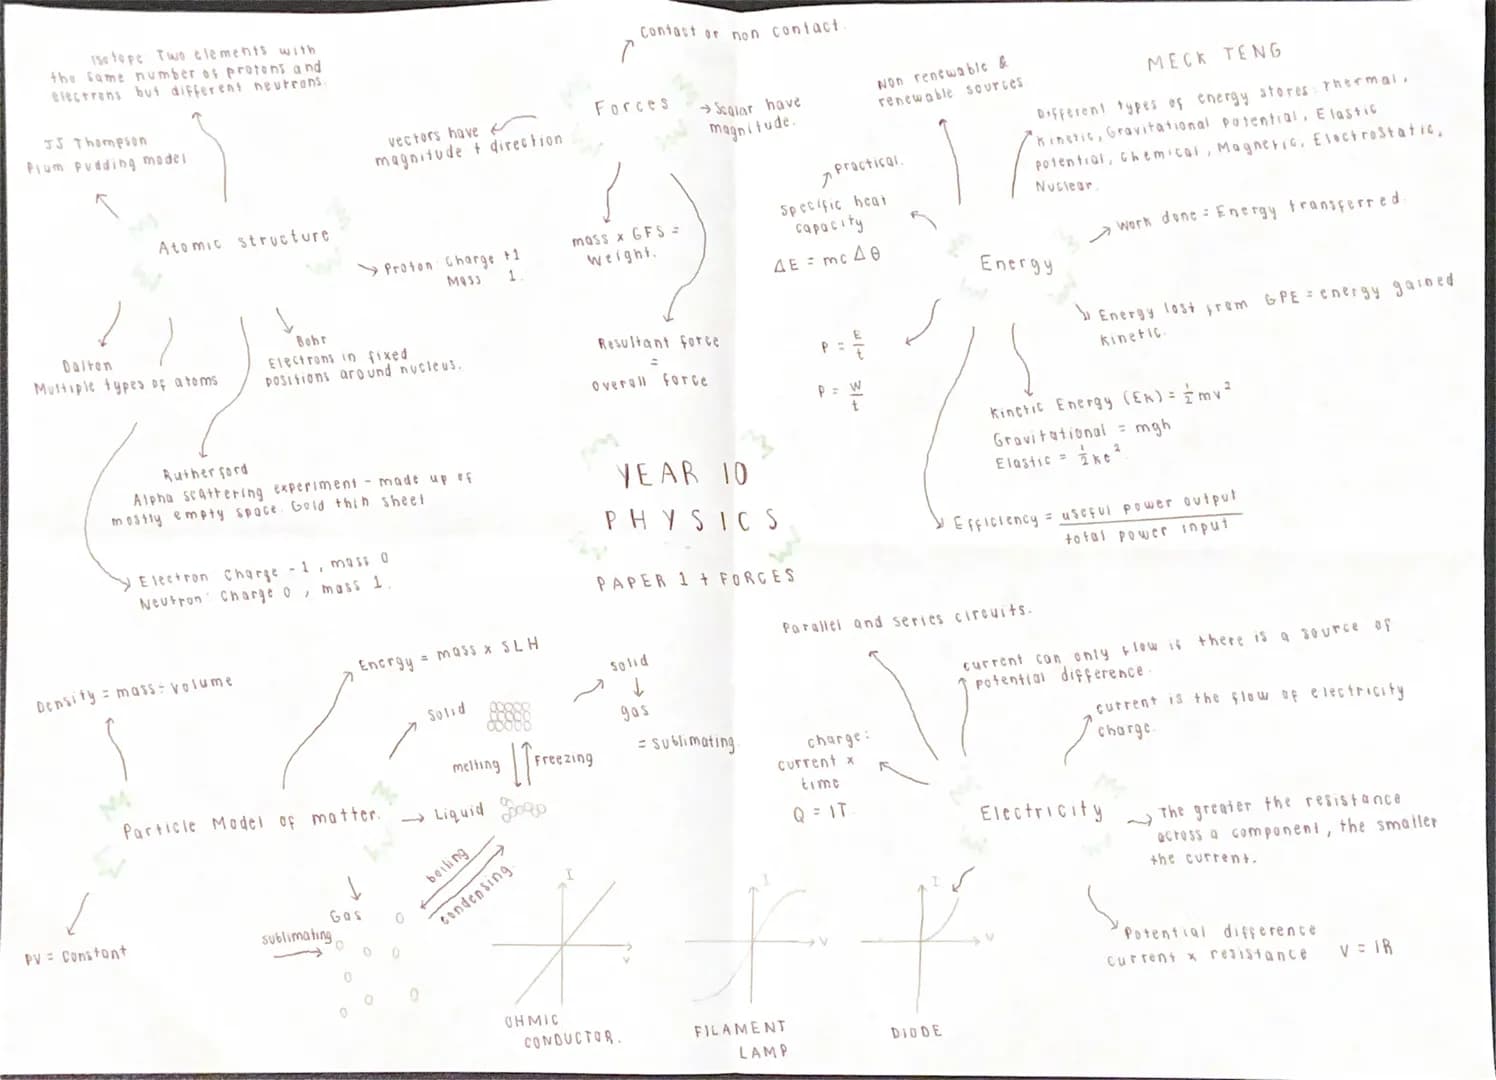 Isotope Two elements with
the same number of protons and
electrons but different neutrons.
JJ Thompson
Plum Pudding model
Atomic structure
Proton: Charge +1
Mass 1.
Dalton
Multiple types of atoms
Bohr
Electrons in fixed
positions around nucleus.
Rutherford
Alpha scattering experiment - made up of
mostly empty space. Gold thin sheet
Electron: Charge -1, mass 0
Neutron: Charge 0, mass 1.
Contact or non contact.
Forces
vectors have
magnitude + direction
Scalar have
magnitude.
mass x GFS =
Weight.
Resultant force
=
overall force
YEAR 10
PHYSICS
PAPER 1 + FORCES
MECK TENG
Non renewable &
renewable sources
Different types of energy stores: Thermal,
Kinetic, Gravitational Potential, Elastic
potential, Chemical, Magnetic, Electrostatic,
Nuclear.
practical.
Specific heat
capacity
ΔE = mcΔθ
Energy
Work done = Energy transferred.
Energy lost from GPE = energy gained
kinetic.
P = E/t
P = W/t
Kinetic Energy (Ek) = ½mv²
Gravitational = mgh
Elastic = ½ke²
Efficiency = useful power output
total power input
Density = mass ÷ volume
Energy = mass x SLH
Particle Model of matter.
PV = constant
Solid
melting
Freezing
Liquid
boiling
condensing
Gas
sublimating
solid
gas
= sublimating.
Parallel and series circuits.
current can only flow if there is a source of
potential difference.
current is the flow of electricity
charge.
charge:
current x
time
Q = IT
Electricity
The greater the resistance
across a component, the smaller
the current.
Potential difference
current x resistance V = IR
I
V
OHMIC
CONDUCTOR.
I
V
FILAMENT
LAMP
I
V
DIODE